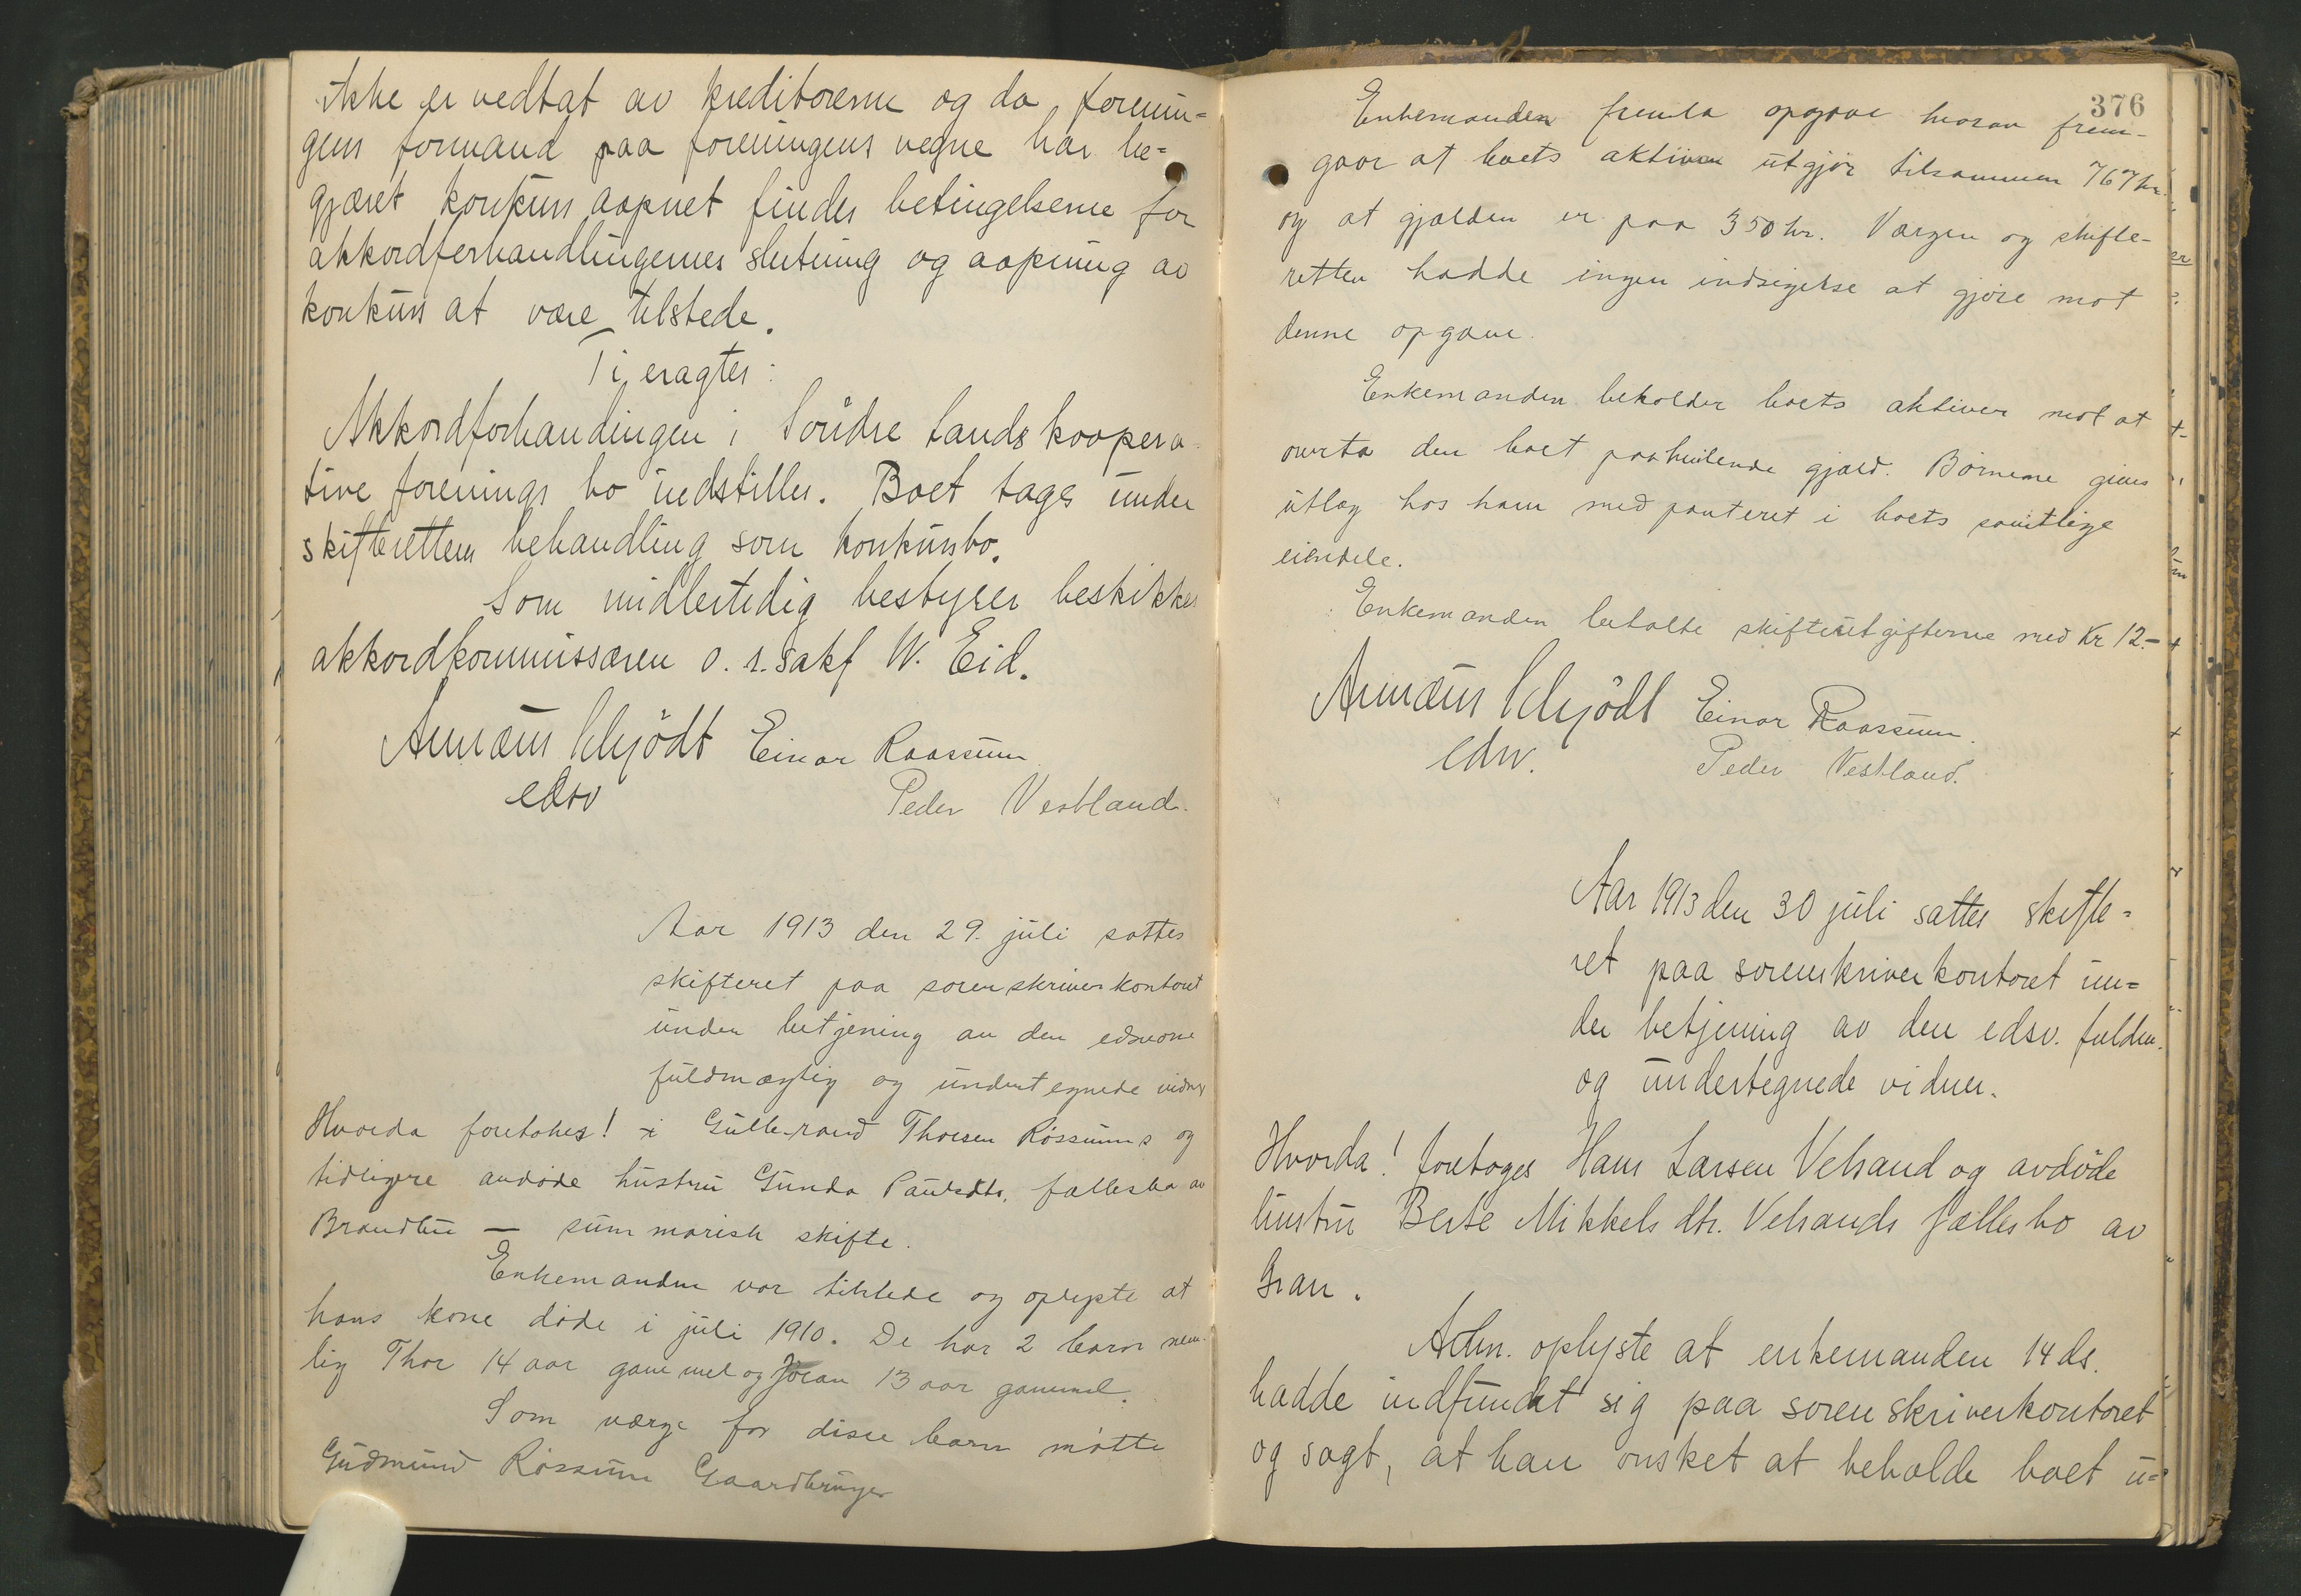 ikke er vedtat av kreditorerne og da forenin=
gens formand paa foreningens vegne har be=
gjæret konkurs aapnet findes betingelserne for
akkordforhandlingernes slutning og aapning av
konkurs at være tilstede.
Ti eragtes:
Akkordforhandlingen i Søndre Lands koopera-
tive forenings bo indstilles. Boet tages under
skifterettens behandling som konkursbo.
Som midlertidig bestyrer beskikkes
akkordkommissæren o. r. sakf W. Eid.
Schjödt Einar Raassum
edsv Peder Vestland.
Aar 1913 den 29. juli sattes
skifteret paa sorenskriverkontoret
under betjening av den edsvorne
fuldmægtig og undertegnede vidner
Hvorda foretokes! i Gulbrand Thorsen Røssums og
tidligere avdøde hustru Gunda Paulsdtr. fællesbo av
Brandbu — summarisk skifte.
Enkemanden var tilstede og oplyste at
hans kone døde i juli 1910. De har 2 barn nem-
lig Thor 14 aar gammel og Joran 13 aar gammel.
Som værge for disse barn møtte
Gudmund Røssum Gaardbruger
376
Enkemanden fremla opgave hvorav frem-
gaar at boets aktiver utgjør tilsammen 767 kr.
og at gjælden er paa 350 kr. Værgen og skifte-
retten hadde ingen indsigelse at gjøre mot
denne opgave.
Enkemanden beholder boets aktiver mot at
overta den boet paahvilende gjæld. Børnene gives
utlæg hos ham med panteret i boets samtlige
eiendele.
Enkemanden betalte skifteutgifterne med Kr 12.-
Schjödt Einar Raassum.
edsv. Peder Vestland.
Aar 1913 den 30 juli sattes skifte=
ret paa sorenskriverkontoret un=
der betjening av den edsv. fuldm.
og undertegnede vidner.
Hvorda! foretoges Hans Larsen Velsand og avdöde
hustru Berte Mikkelsdtr. Velsands fællesbo av
Gran.
Adm. oplyste at enkemanden 14 ds.
hadde indfundet sig paa sorenskriverkontoret
og sagt, at han ønsket at beholde boet u=